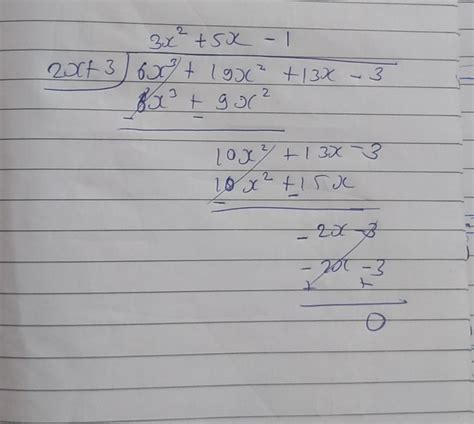 3x² + 5x - 1
2x+3 ) 6x³ + 19x² + 13x - 3
6x³ + 9x²
- -
10x² + 13x - 3
10x² + 15x
- -
- 2x - 3
- 2x - 3
+ +
0